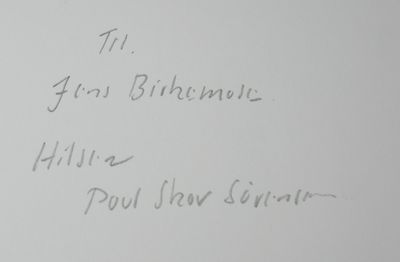 Til.
Jens Birkemose
Hilsen
Poul Skov Sørensen